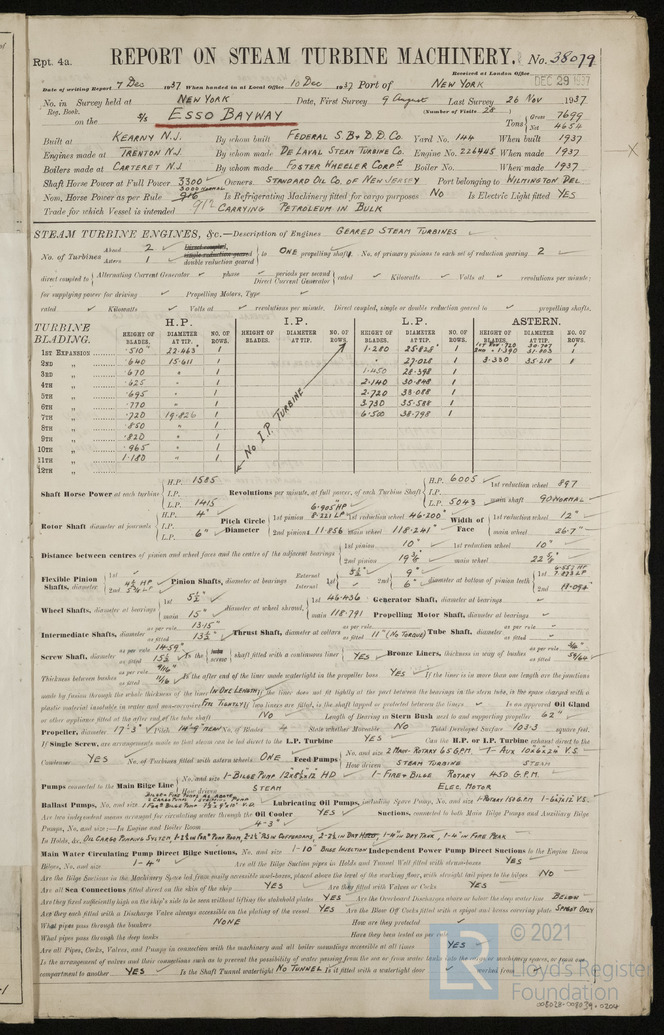 Rpt. 4a.
REPORT ON STEAM TURBINE MACHINERY. No. 38079
Received at London Office DEC 29 1937
Date of writing Report 7 Dec 1937 When handed in at Local Office 10 Dec 1937 Port of NEW YORK
No. in Reg. Book. Survey held at NEW YORK Date, First Survey 9 August Last Survey 26 Nov 1937
(Number of Visits 28)
on the S/S ESSO BAYWAY Tons Gross 7699 Net 4654
Built at KEARNY N.J. By whom built FEDERAL S.B & D.D. Co. Yard No. 144 When built 1937
Engines made at TRENTON N.J. By whom made DE LAVAL STEAM TURBINE CO. Engine No. 226445 When made 1937
Boilers made at CARTERET N.J. By whom made FOSTER WHEELER CORP Boiler No. When made 1937
Shaft Horse Power at Full Power 3300 3000 NORMAL Owners STANDARD OIL CO. OF NEW JERSEY Port belonging to WILMINGTON DEL
Nom. Horse Power as per Rule 912 Is Refrigerating Machinery fitted for cargo purposes NO Is Electric Light fitted YES
Trade for which Vessel is intended CARRYING PETROLEUM IN BULK
STEAM TURBINE ENGINES, &c.—Description of Engines GEARED STEAM TURBINES
No. of Turbines Ahead 2 Astern 1 Direct coupled, single reduction geared double reduction geared to ONE propelling shaft. No. of primary pinions to each set of reduction gearing 2
direct coupled to Alternating Current Generator phase periods per second Direct Current Generator rated Kilowatts Volts at revolutions per minute;
for supplying power for driving Propelling Motors, Type
rated Kilowatts Volts at revolutions per minute. Direct coupled, single or double reduction geared to propelling shafts.
TURBINE BLADING. H.P. I.P. L.P. ASTERN.
HEIGHT OF BLADES. DIAMETER AT TIP. NO. OF ROWS. HEIGHT OF BLADES. DIAMETER AT TIP. NO. OF ROWS. HEIGHT OF BLADES. DIAMETER AT TIP. NO. OF ROWS. HEIGHT OF BLADES. DIAMETER AT TIP. NO. OF ROWS.
1ST EXPANSION .510" 22.463" 1 1.280 25.828" 1
2ND " .640 15.611 1 " 27.028 1 3.330 35.218 1
3RD " .670 " 1 1.450 28.398 1
4TH " .625 " 1 2.140 30.848 1
5TH " .695 " 1 2.720 33.088 1
6TH " .770 " 1 3.730 35.588 1
7TH " .720 19.826 1 6.500 38.798 1
8TH " .850 " 1
9TH " .820 " 1
10TH " .965 " 1
11TH " 1.180 " 1
12TH "
No I.P. TURBINE
Shaft Horse Power at each turbine H.P. 1585 I.P. L.P. 1415 Revolutions per minute, at full power, of each Turbine Shaft H.P. 6005 I.P. L.P. 5043 1st reduction wheel 897 main shaft 90 NORMAL
Rotor Shaft diameter at journals H.P. 4" I.P. L.P. 6" Pitch Circle Diameter 1st pinion 6.905 HP 8.221 LP 1st reduction wheel 46.200" 2nd pinion 11.856 main wheel 118.241" Width of Face 1st reduction wheel 12" main wheel 26.7"
Distance between centres of pinion and wheel faces and the centre of the adjacent bearings 1st pinion 10" 2nd pinion 1st reduction wheel 10" main wheel
Flexible Pinion Shafts, diameter 1st 2nd Pinion Shafts, diameter at bearings External Internal 1st 2nd 9" 6" diameter at bottom of pinion teeth 1st 2nd
Wheel Shafts, diameter at bearings 1st 5½" main 15" diameter at wheel shroud, 1st 46.436 main 118.791 Generator Shaft, diameter at bearings Propelling Motor Shaft, diameter at bearings
Intermediate Shafts, diameter as per rule 13.15" as fitted 13½" Thrust Shaft, diameter at collars as per rule as fitted 11" (NO TORQUE) Tube Shaft, diameter as per rule as fitted
Screw Shaft, diameter as per rule 14.59" as fitted 15½ Is the screw shaft fitted with a continuous liner YES Bronze Liners, thickness in way of bushes as per rule as fitted
Thickness between bushes as per rule 9/16" as fitted 11/16 Is the after end of the liner made watertight in the propeller boss YES If the liner is in more than one length are the junctions
made by fusion through the whole thickness of the liner IN ONE LENGTH If the liner does not fit tightly at the part between the bearings in the stern tube, is the space charged with a
plastic material insoluble in water and non-corrosive FITS TIGHTLY If two liners are fitted, is the shaft lapped or protected between the liners Is an approved Oil Gland
or other appliance fitted at the after end of the tube shaft NO Length of Bearing in Stern Bush next to and supporting propeller 62"
Propeller, diameter 17'-3" Pitch No. of Blades 4 State whether Moveable NO Total Developed Surface 103.3 square feet.
If Single Screw, are arrangements made so that steam can be led direct to the L.P. Turbine YES Can the H.P. or I.P. Turbine exhaust direct to the
Condenser YES No. of Turbines fitted with astern wheels ONE Feed Pumps No. and size 2 MAIN-ROTARY 65 G.P.M. 1-AUX 10X6X24" V.S. How driven STEAM TURBINE STEAM
Pumps connected to the Main Bilge Line No. and size 1-BILGE PUMP 12X8½X12 HD 1-FIRE & BILGE ROTARY 450 G.P.M. How driven STEAM ELEC MOTOR
Ballast Pumps, No. and size Lubricating Oil Pumps, including Spare Pump, No. and size 1-ROTARY 150 G.P.M.
Are two independent means arranged for circulating water through the Oil Cooler YES Suctions, connected to both Main Bilge Pumps and Auxiliary Bilge
Pumps, No. and size:—In Engine and Boiler Room 4-3"
In Holds, &c. OIL CARGO PUMPING SYSTEM, 1-2½" IN FOR'D PUMP ROOM, 2-2½" P&S IN COFFERDAMS, 2-2½ IN DRY HOLD, 1-4" IN DRY TANK, 1-4" IN FORE PEAK
Main Water Circulating Pump Direct Bilge Suctions, No. and size 1-10" BILGE INJECTION Independent Power Pump Direct Suctions to the Engine Room
Bilges, No. and size 1-4" Are all the Bilge Suction pipes in Holds and Tunnel Well fitted with strum-boxes YES
Are the Bilge Suctions in the Machinery Space led from easily accessible mud-boxes, placed above the level of the working floor, with straight tail pipes to the bilges NO
Are all Sea Connections fitted direct on the skin of the ship YES Are they fitted with Valves or Cocks YES
Are they fixed sufficiently high on the ship's side to be seen without lifting the stokehold plates YES Are the Overboard Discharges above or below the deep water line BELOW
Are they each fitted with a Discharge Valve always accessible on the plating of the vessel YES Are the Blow Off Cocks fitted with a spigot and brass covering plate SPIGOT ONLY
What pipes pass through the bunkers NONE How are they protected
What pipes pass through the deep tanks Have they been tested as per rule
Are all Pipes, Cocks, Valves, and Pumps in connection with the machinery and all boiler mountings accessible at all times YES
Is the arrangement of valves and their connections such as to prevent the possibility of water passing from the sea or from water tanks into the cargo or machinery spaces, or from one
compartment to another YES Is the Shaft Tunnel watertight NO TUNNEL Is it fitted with a watertight door worked from
© 2021
Lloyd's Register
Foundation
008028-008039-0204